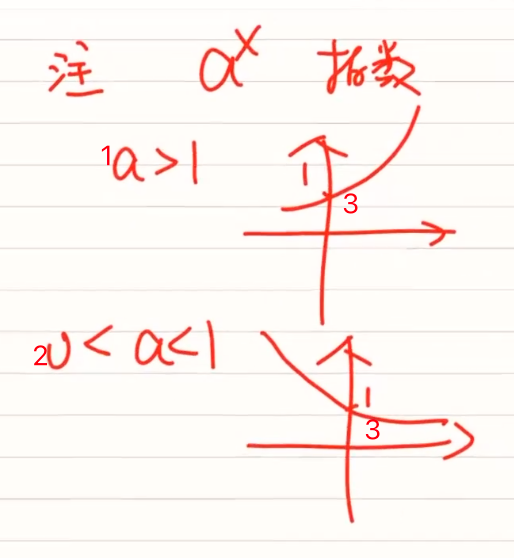 注 a^x 指数
1 a>1
1
3
2 0<a<1
1
3